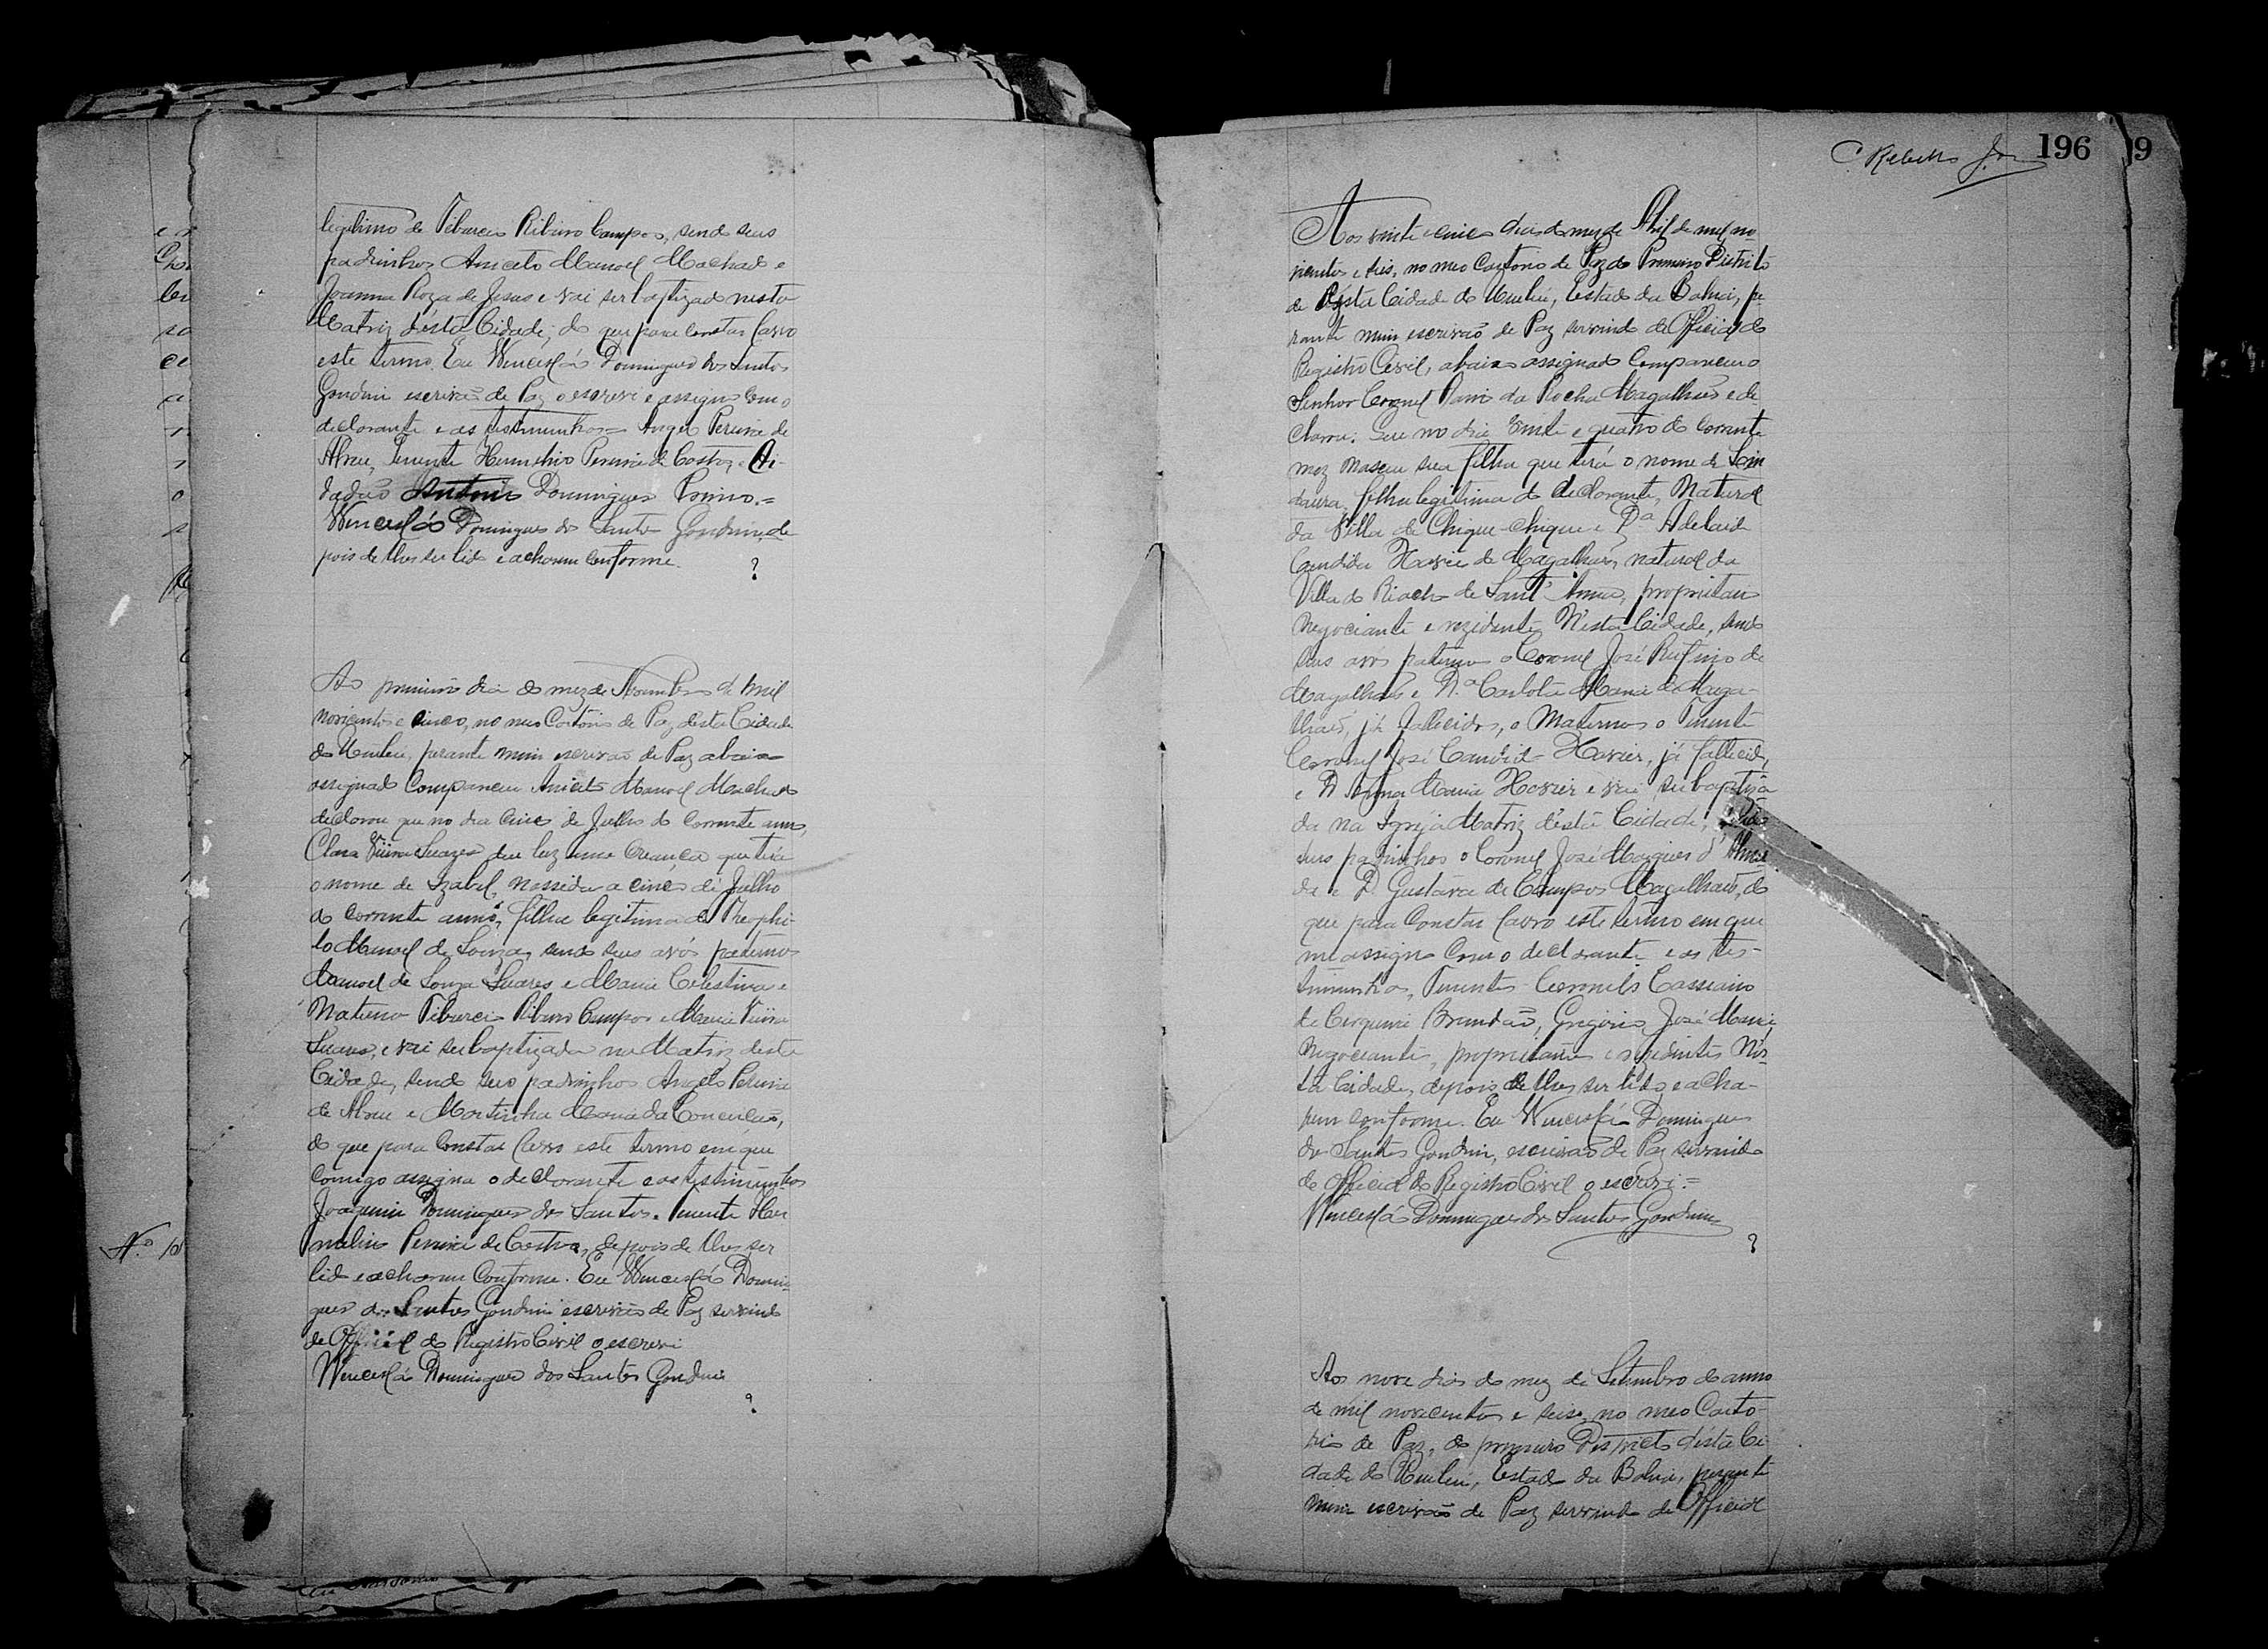 legitimo de Tiburcio Ribeiro Campos, sendo seus
padrinhos Aniceto Manoel Machado e
Joanna Roza de Jesus e vai ser baptizado nesta
Matriz d'esta Cidade; do que para constar lavro
este termo. Eu Wencesláo Domingues dos Santos
Gondim escrivão de Paz o escrevi e assigno com o
declarante e as testimunhas = Angelo Pereira de
Abreu, Tenente Hermelino Pereira da Costa, e Ci-
dadão Antonio Domingues Primo.=
Wencesláo Domingues dos Santos Gondim, de
pois de lhes ser lido e acharem conforme.
Ao primeiro dia do mez de Novembro de mil
novicentos e cinco, no meo Cartorio de Paz desta Cidade
do Urubú, perante mim escrivão de Paz abaixo
assignado Compareceu Aniceto Manoel Machado
declarou que no dia cinco de Julho do corrente anno,
Clara Soares deu luz uma Creança que terá
o nome de Izabel, nascida a cinco de Julho
do corrente anno, filha legitima de Theophi-
lo Manoel de Souza, sendo seus avós paternos
Manoel de Souza Soares e Maria Celestina e
Materno Tiburcio Ribeiro Campos e Maria
Soares, e vai ser baptizada na Matriz desta
Cidade, sendo seus padrinhos Angelo Pereira
de Abreu e Martinha Maria da Conceicão,
do que para Constar lavro este termo em que
comigo assigna o declarante e as testimunhas
Joaquim Domingues dos Santos. Tenente Her
melino Pereira da Costa, depois de lhes ser
lido e acharem Conforme. Eu Wenceslá Domin-
gues dos Santos Gondim escrivão de Paz servindo
de Official do Registro Civil o escrevi
Wenceslá Domingues dos Santos Gondim
196 9
Aos vinte e cinco dias do mez de Abril de mil no-
vicentos e seis, no meo Cartorio de Paz do Primeiro Districto
de desta Cidade do Urubú, Estado da Bahia, pe-
rante mim escrivão de Paz servindo de Official do
Registro Civil, abaixo assignado Compareceu o
Senhor Coronel da Rocha Magalhães e de-
clarou: Que no dia vinte e quatro do corrente
mez nasceu sua filha que terá o nome de
filha legitima do declarante, Natural
da Villa de Chique-chique e D.ª Adelaide
Candida Xavier de Magalhães, natural da
Villa do Riacho de Sant'Anna, proprietario
Negociante e rezidente N'esta Cidade, sendo
seus avós paternos o Coronel José Rufino de
Magalhães e D.ª Carlota Maria de Maga-
lhaes, já fallecidos, e Maternos o Tenente
Coronel José Candido Xavier, já fallecido,
e D. Anna Maria Xavier e vai ser baptiza
da na Igreja Matriz d'esta Cidade, sendo
seus padrinhos o Coronel José Marques d'Almei
da e D. Gustava de Campos Magalhães, do
que para Constar lavro este termo em que
me assigno Com o declarante e as tes-
timunhas, Tenentes Coroneis Cassiano
de Cerqueira Brandão, Gregorio José Maria
Negociantes, proprietarios e rezidentes N'es-
ta Cidade, depois de lhes ser lido e acha-
rem conforme. Eu Wenceslá Domingues
dos Santos Gondim, escrivão de Paz servindo
de Official do Registro Civil o escrevi.=
Wenceslá Domingues dos Santos Gondim
Aos nove dias do mez de Setembro do anno
de mil novecentos e seis, no meo Carto-
rio de Paz, do primeiro Districto desta Ci
dade do Urubú, Estado da Bahia, perante
mim escrivão de Paz servindo de Official